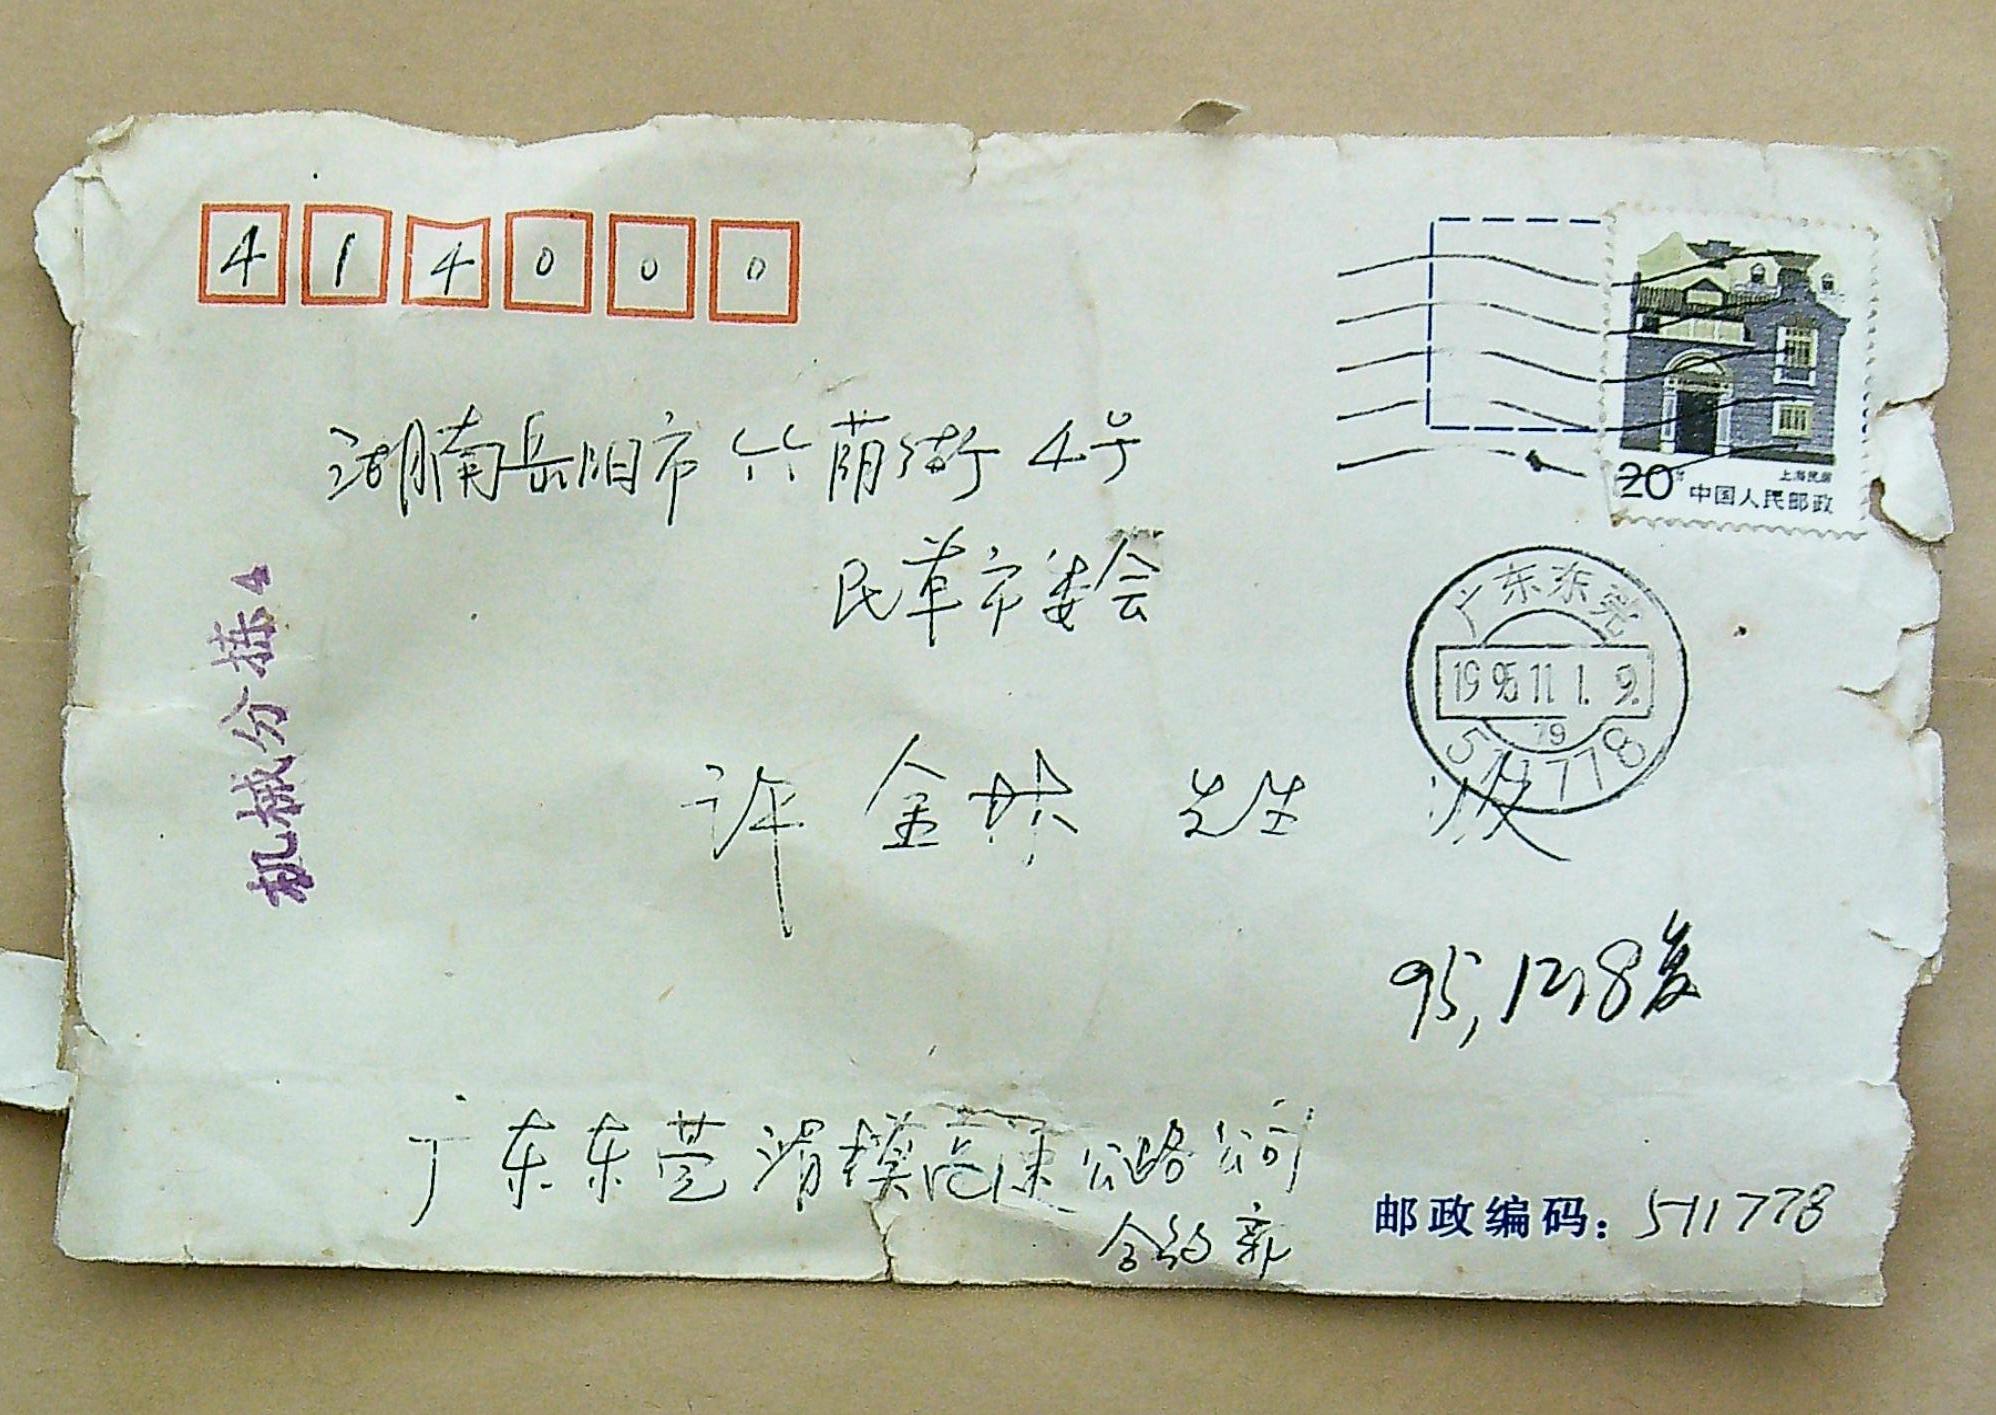 414000
20分 上海民居
中国人民邮政
湖南岳阳市竹荫街4号
民革市委会
广东东莞
1995.11.1.9
19
511778
机械分拣4
许金林 先生 收
95,12,8复
广东东莞 高速公路公司
邮政编码: 511778